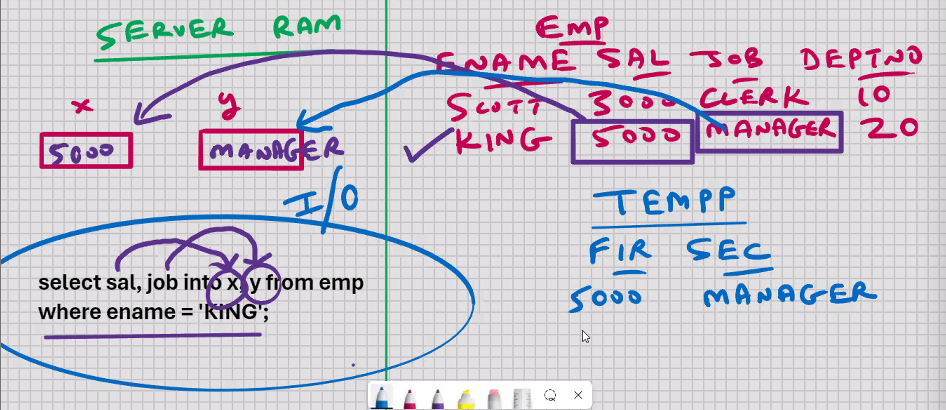 SERVER RAM
x y
5000 MANAGER
I/O
select sal, job into x, y from emp
where ename = 'KING';
EMP
ENAME SAL JOB DEPTNO
SCOTT 3000 CLERK 10
KING 5000 MANAGER 20
TEMPP
FIR SEC
5000 MANAGER